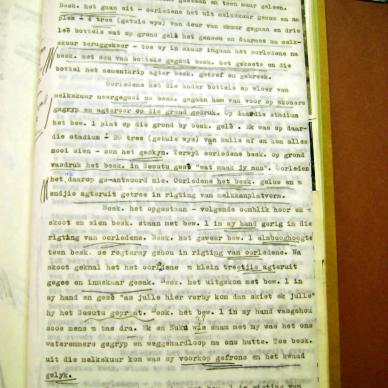 Besk. het gaan uit - oorledene het uit melkskuur gekom en na
plek - 4 tree (getuie wys) van deur van skuur gegaan en drie
leë bottels wat op grond gelê het geneem en daarmee na melk-
skuur teruggekeer - toe hy in skuur ingaan het oorledene na
besk. met een van bottels gegooi besk. het gekoets en die
bottel het sementkrip agter besk. getref en gebreek.
Oorledene het die ander bottels op vloer van
melkskuur neergegooi na besk. gegaan hom van voor op skouers
gegryp en agteroor op die grond gedruk. Op daardie stadium
het bew. 1 plat op die grond by besk. gelê. Ek was op daar-
die stadium - 20 tree (getuie wys) van hulle af en kon alles
mooi sien - son het geskyn. Terwyl oorledene besk. op grond
vasdruk het besk. in Sesutu gesê "wat maak jy nou". Oorledene
het daarop ge-antwoord nie. Oorledene het besk. gelos en 'n
endjie agteruit getree in rigting van melkkanplatvorm.
Besk. het opgestaan - volgende oomblik hoor ek
skoot en sien besk. staan met bew. 1 in sy hand gerig in die
rigting van oorledene. Besk. het geweer bew. 1
teen besk. se regtersy gehou in rigting van oorledene. Na
skoot geknal het het oorledene 'n klein treetjie agteruit
gegee en inmekaar gesak. Besk. het uitgekom met bew. 1 in
sy hand en gesê "as julle hier verby kom dan skiet ek julle"
hy het Sesutu gepraat. Besk. het bew. 1 in sy hand vasgehou
soos mens 'n tas dra. Ek en Suku wie saam met my was het ons
wateremmers gegryp en weggehardloop na ons hutte. Toe besk.
uit die melkskuur kom was sy voorkop gefrons en het kwaad
gelyk.